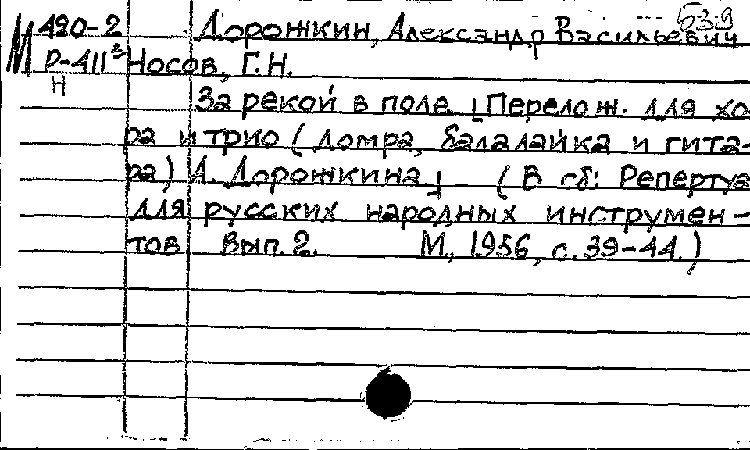 539
М 490-2 Дорожкин, Александр Васильевич
Р-411³ Носов, Г.Н.
Н За рекой в поле [Перелож. для хо-
ра и трио (домра, балалайка и гита-
ра) А. Дорожкина] (В сб: Репертуа
для русских народных инструмен-
тов Вып. 2. М., 1956, с. 39-44.)